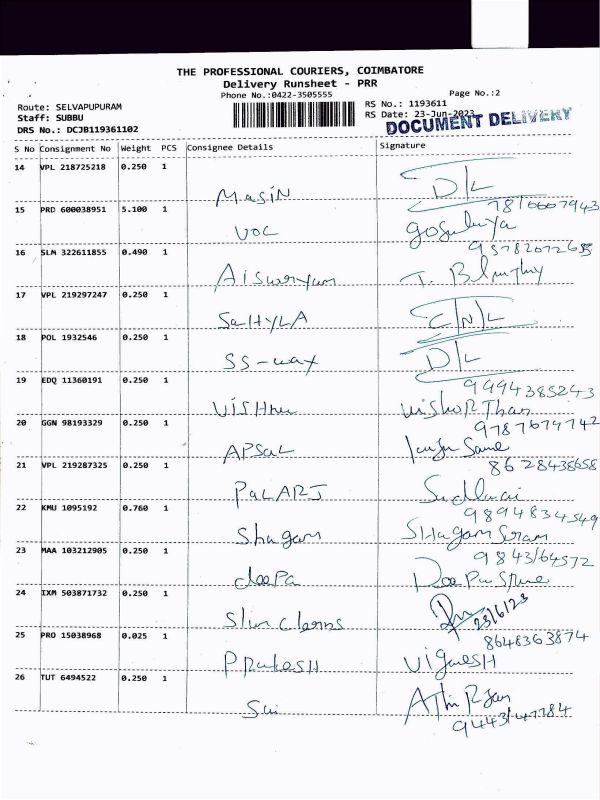 THE PROFESSIONAL COURIERS, COIMBATORE
Delivery Runsheet - PRR
Phone No.:0422-3505555
Page No.:2
Route: SELVAPUPURAM
RS No.: 1193611
Staff: SUBBU
RS Date: 23-Jun-2023
DRS No.: DCJB119361102
DOCUMENT DELIVERY
S No Consignment No Weight PCS Consignee Details Signature
14 VPL 218725218 0.250 1 MasiN D/L
15 PRD 600038951 5.100 1 VOC
16 SLM 322611855 0.490 1
17 VPL 219297247 0.250 1 SaHYLA
18 POL 1932546 0.250 1 SS-way D/L
19 EDQ 11360191 0.250 1 ViSHnu 9994385243
20 GGN 98193329 0.250 1 APSaL
21 VPL 219287325 0.250 1 8628438658
22 KMU 1095192 0.760 1 Shagam 9894834549
23 MAA 103212905 0.250 1 deepa
24 IXM 503871732 0.250 1 23/6/23
25 PRO 15038968 0.025 1 PRakesH 8648363874 VignesH
26 TUT 6494522 0.250 1 Sai